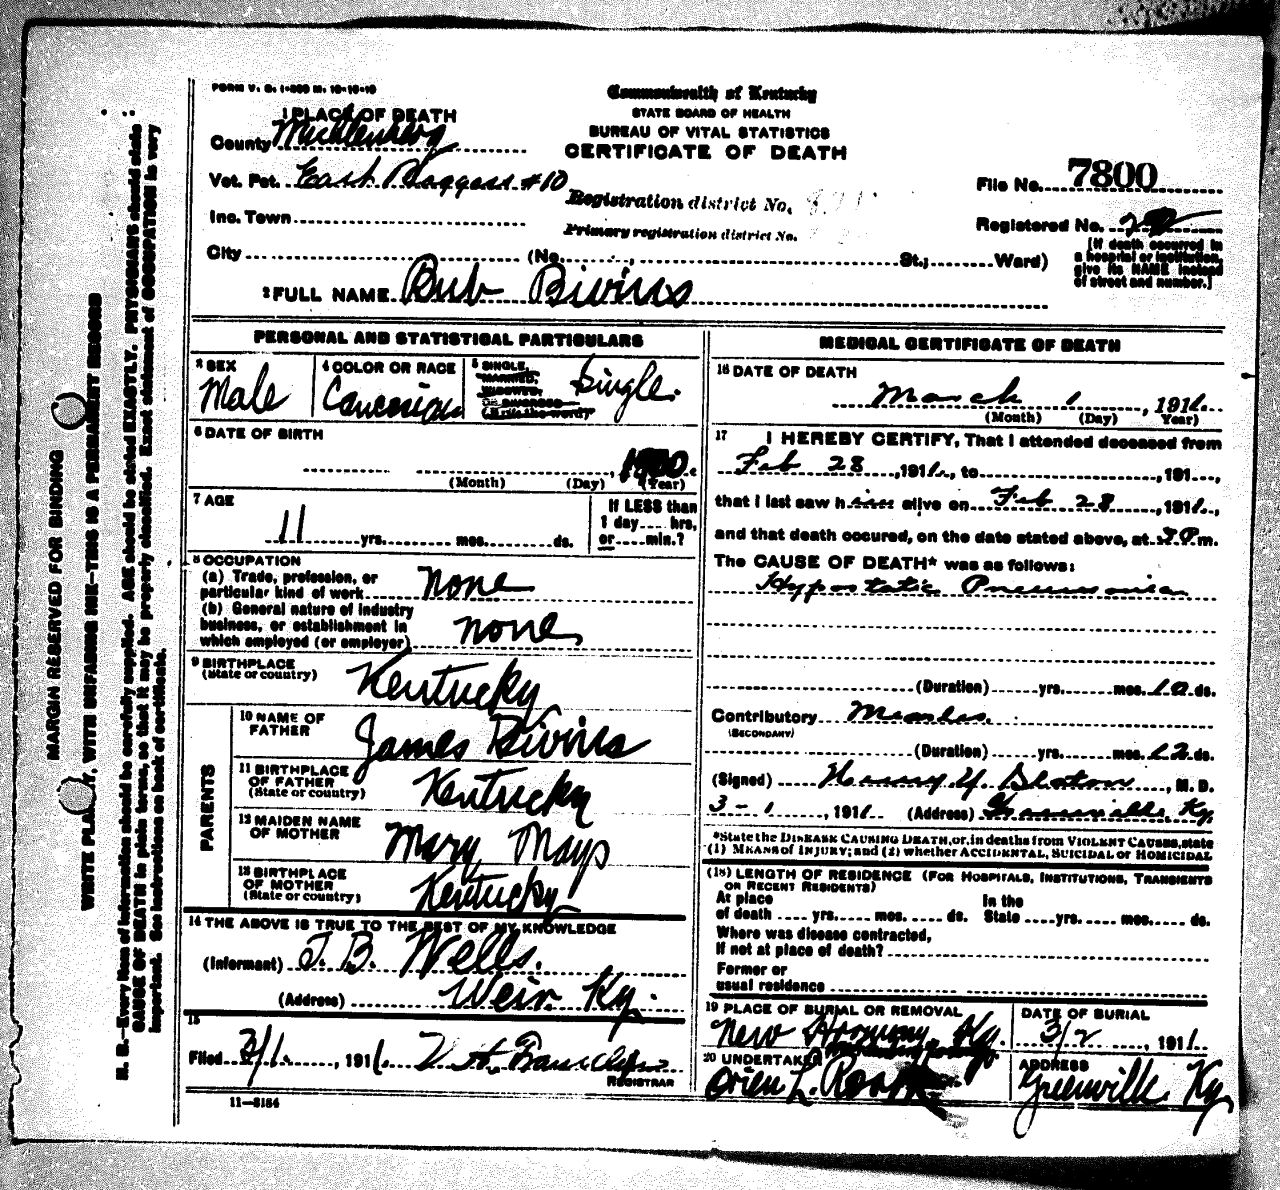 FORM V. S. 1-
Commonwealth of Kentucky
STATE BOARD OF HEALTH
BUREAU OF VITAL STATISTICS
CERTIFICATE OF DEATH
1 PLACE OF DEATH
County
Vot. Pct. East #10
Inc. Town
City (No. , St.; Ward)
Registration district No.
Primary registration district No.
File No. 7800
Registered No.
[If death occurred in
a hospital or institution,
give its NAME instead
of street and number.]
2 FULL NAME Bub Bivins
PERSONAL AND STATISTICAL PARTICULARS
3 SEX
Male
4 COLOR OR RACE
Caucasian
5 SINGLE,
MARRIED,
WIDOWED,
OR DIVORCED
(Write the word)
Single.
6 DATE OF BIRTH
, 1900.
(Month) (Day) (Year)
7 AGE
11 yrs. mos. ds.
If LESS than
1 day hrs.
or min.?
8 OCCUPATION
(a) Trade, profession, or
particular kind of work none
(b) General nature of industry
business, or establishment in
which employed (or employer) none
9 BIRTHPLACE
(State or country) Kentucky
PARENTS
10 NAME OF
FATHER James Bivins
11 BIRTHPLACE
OF FATHER
(State or country) Kentucky
12 MAIDEN NAME
OF MOTHER Mary Mays
13 BIRTHPLACE
OF MOTHER
(State or country) Kentucky
14 THE ABOVE IS TRUE TO THE BEST OF MY KNOWLEDGE
(Informant) J. B. Wells.
(Address) Weir Ky.
15
Filed 3/1. , 1911.
REGISTRAR
11-5184
MEDICAL CERTIFICATE OF DEATH
16 DATE OF DEATH
March 1 , 1911.
(Month) (Day) Year)
17 I HEREBY CERTIFY, That I attended deceased from
Feb 28 , 1911, to , 191 ,
that I last saw him alive on Feb 28 , 1911,
and that death occured, on the date stated above, at P m.
The CAUSE OF DEATH* was as follows:
Hypostatic Pneumonia
(Duration) yrs. mos. 10 ds.
Contributory Measles.
(SECONDARY)
(Duration) yrs. mos. 12 ds.
(Signed) Henry Y Slaton , M. D.
3-1 , 1911. (Address) Greenville, Ky.
*State the DISEASE CAUSING DEATH, or, in deaths from VIOLENT CAUSES, state
(1) MEANS of INJURY; and (2) whether ACCIDENTAL, SUICIDAL or HOMICIDAL
(18) LENGTH OF RESIDENCE (FOR HOSPITALS, INSTITUTIONS, TRANSIENTS
OR RECENT RESIDENTS)
At place In the
of death yrs. mos. ds. State yrs. mos. ds.
Where was disease contracted,
If not at place of death?
Former or
usual residence
19 PLACE OF BURIAL OR REMOVAL
New Harmony Ky.
DATE OF BURIAL
3/2 , 1911.
20 UNDERTAKER
Orien L. Roark
ADDRESS
Greenville Ky
MARGIN RESERVED FOR BINDING
WRITE PLAINLY, WITH UNFADING INK—THIS IS A PERMANENT RECORD
N. B.—Every item of information should be carefully supplied. AGE should be stated EXACTLY. PHYSICIANS should state
CAUSE OF DEATH in plain terms, so that it may be properly classified. Exact statement of OCCUPATION is very
important. See instructions on back of certificate.